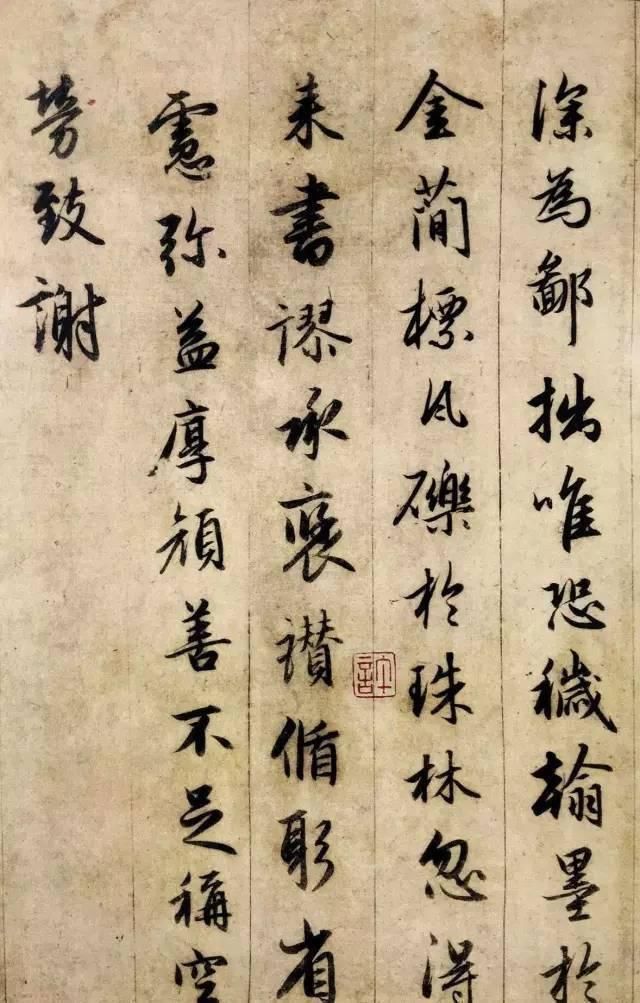 深為鄙拙唯恐穢翰墨於
金蕳標凡礫於珠林忽得
来書謬承襃讃循躬省
慮弥益厚顔善不足稱空
勞致謝